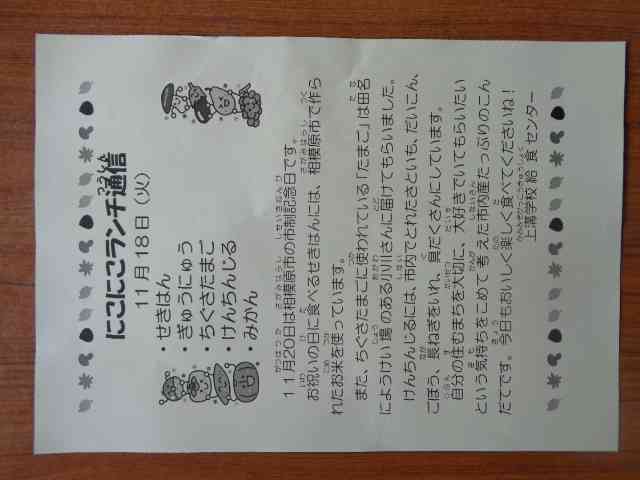 にこにこランチ通信
11月18日（火）
・せきはん
・ぎゅうにゅう
・ちぐさたまご
・けんちんじる
・みかん
11月20日は相模原市の市制記念日です。
お祝いの日に食べるせきはんには、相模原市で作ら
れたお米を使っています。
また、ちぐさたまごに使われている「たまご」は田名
にようけい場のある小川さんに届けてもらいました。
けんちんじるには、市内でとれたさといも、だいこん、
ごぼう、長ねぎをいれ、具だくさんにしています。
自分の住むまちを大切に、大好きでいてもらいたい
という気持ちをこめて考えた市内産たっぷりのこん
だてです。今日もおいしく楽しく食べてくださいね！
上溝学校給食センター